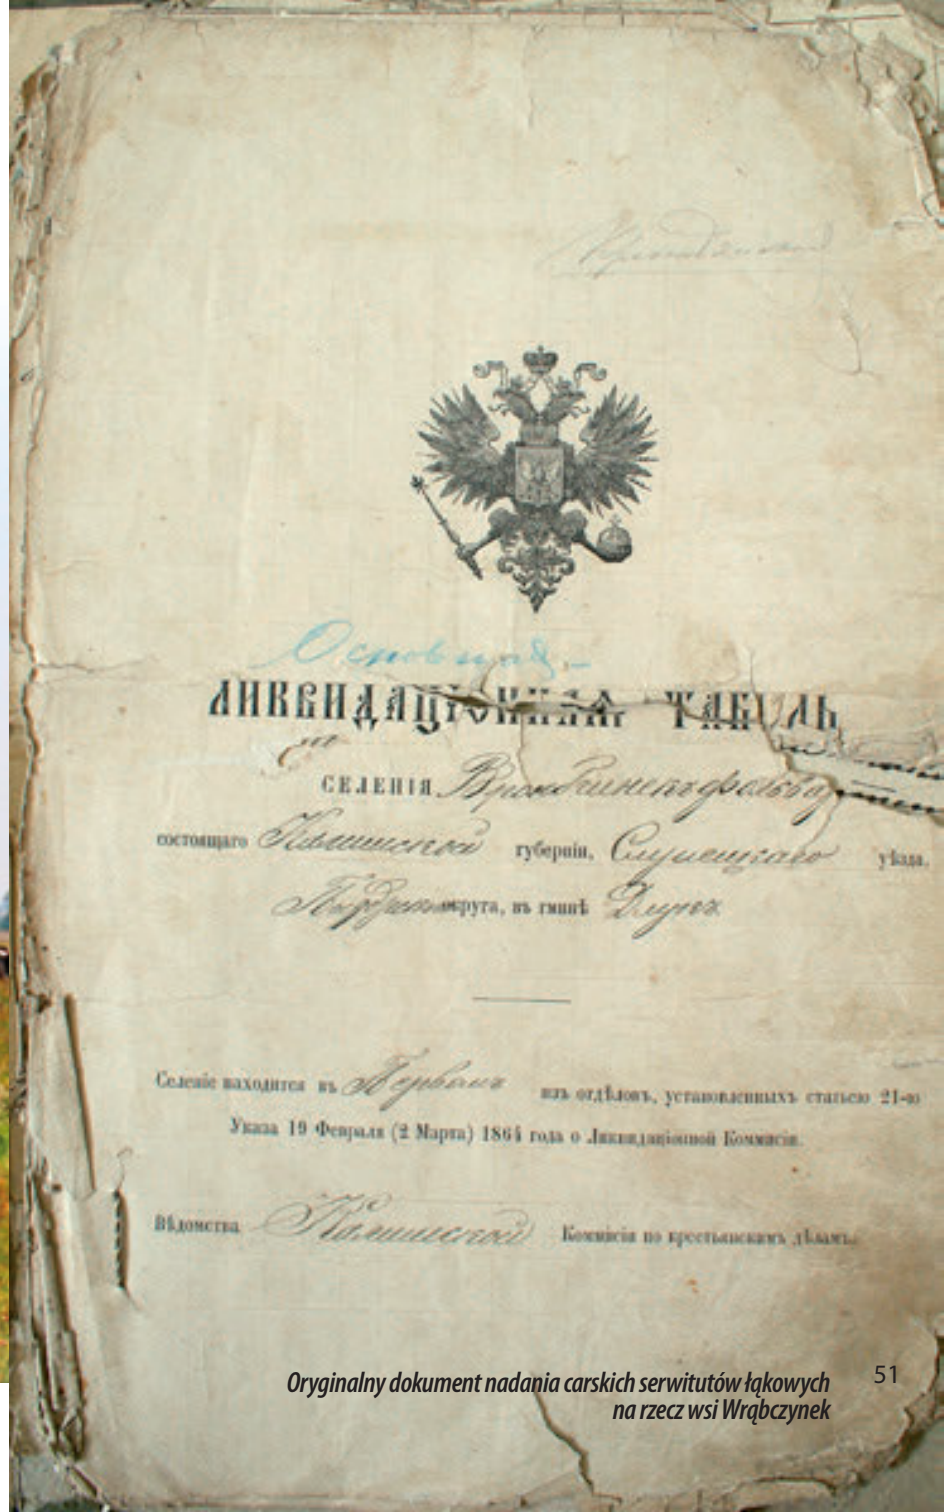 Основная
ЛИКВИДАЦІОННАЯ ТАБЕЛЬ
СЕЛЕНІЯ
состоящаго Калишской губерніи, Слупецкаго уѣзда.
округа, въ гминѣ
Селеніе находится въ Первомъ изъ отдѣловъ, установленныхъ статьею 21-ю
Указа 19 Февраля (2 Марта) 1864 года о Ликвидаціонной Коммисіи.
Вѣдомства Калишской Коммисіи по крестьянскимъ дѣламъ.
Oryginalny dokument nadania carskich serwitutów łąkowych
na rzecz wsi Wrąbczynek
51